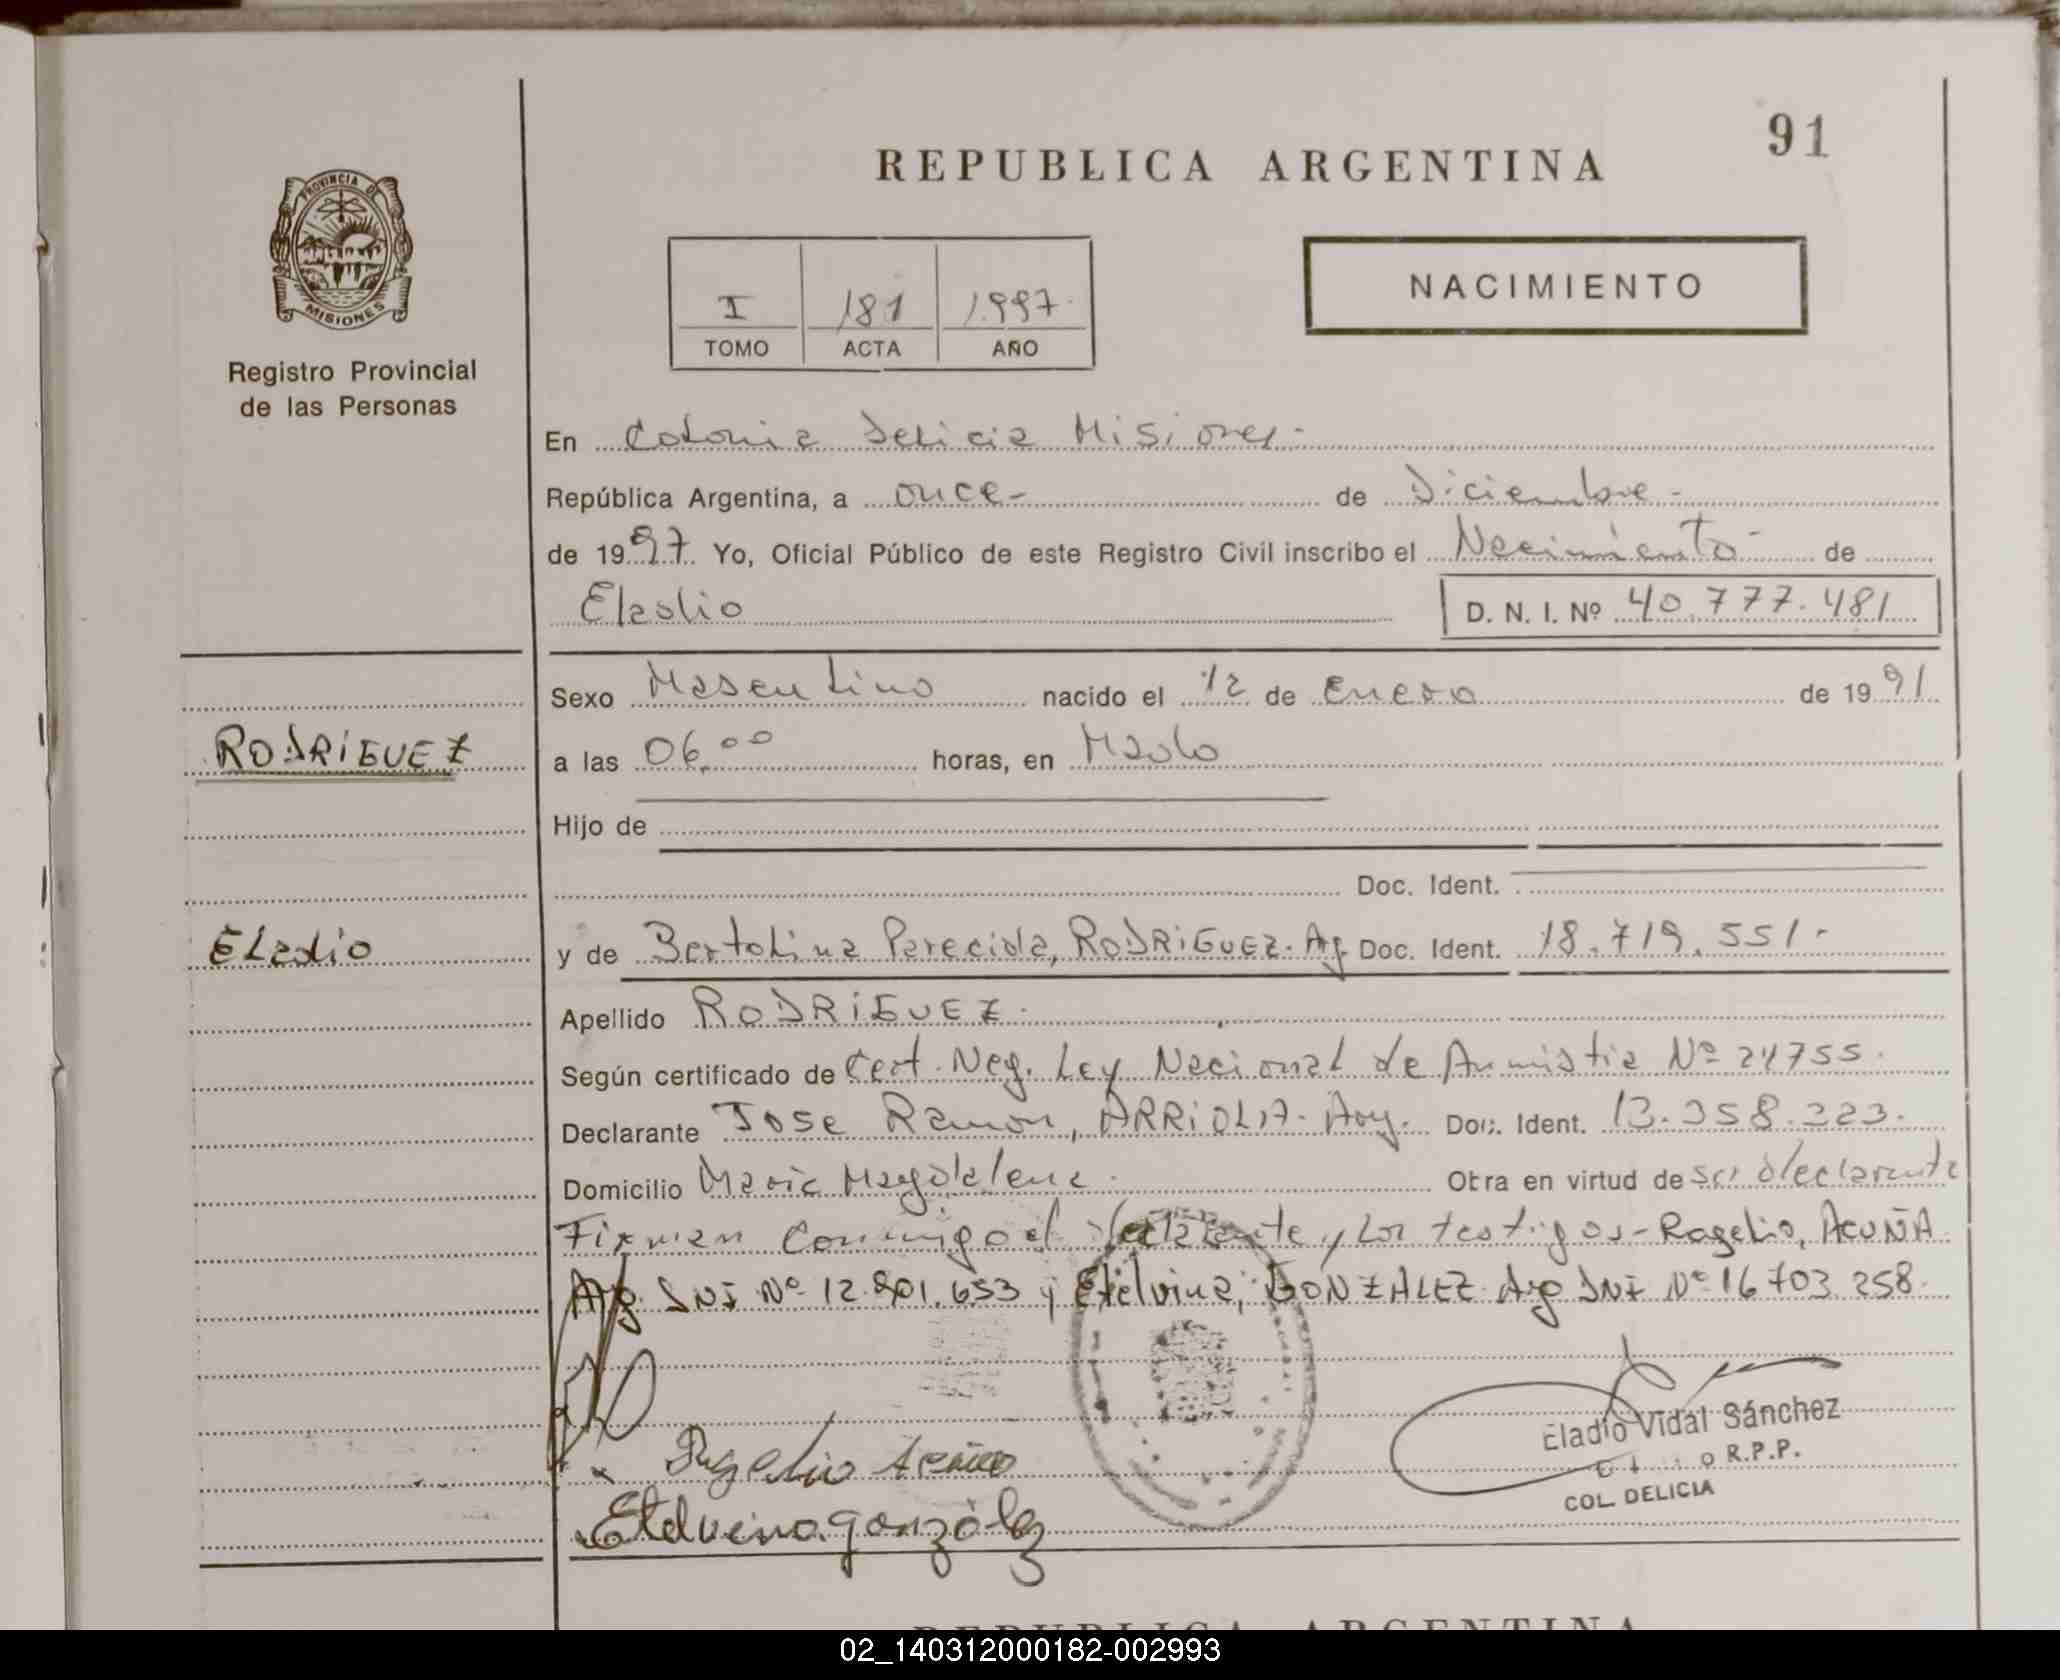 91
REPUBLICA ARGENTINA
PROVINCIA DE
MISIONES
Registro Provincial
de las Personas
I 181 1.997.
TOMO ACTA AÑO
NACIMIENTO
En Colonia Delicia Misiones-
República Argentina, a once- de Diciembre-
de 1997. Yo, Oficial Público de este Registro Civil inscribo el Nacimiento- de
Eladio D. N. I. Nº 40.777.481
Sexo Masculino nacido el 12 de Enero de 1991
RODRIGUEZ
a las 06.00 horas, en
Hijo de
Doc. Ident.
Eladio
y de Bertolina Parecida, RODRIGUEZ. Ag. Doc. Ident. 18.719.551.-
Apellido RODRIGUEZ.
Según certificado de Cert. Neg. Ley Nacional de Anmistia Nº 24755.
Declarante Jose Ramon, ARRIOLA- Arg. Doc. Ident. 13.358.223.
Domicilio Maria Magdalena. Otra en virtud de su declarante
Firman conmigo el declarante y los testigos- Rogelio, ACUÑA
Arg. DNI Nº 12.801.653 y Etelvina, GONZALEZ Arg DNI Nº 16703.258.
Eladio Vidal Sánchez
R.P.P.
COL. DELICIA
Rogelio Acuña
Etelvina gonzález
REPUBLICA ARGENTINA
02_140312000182-002993